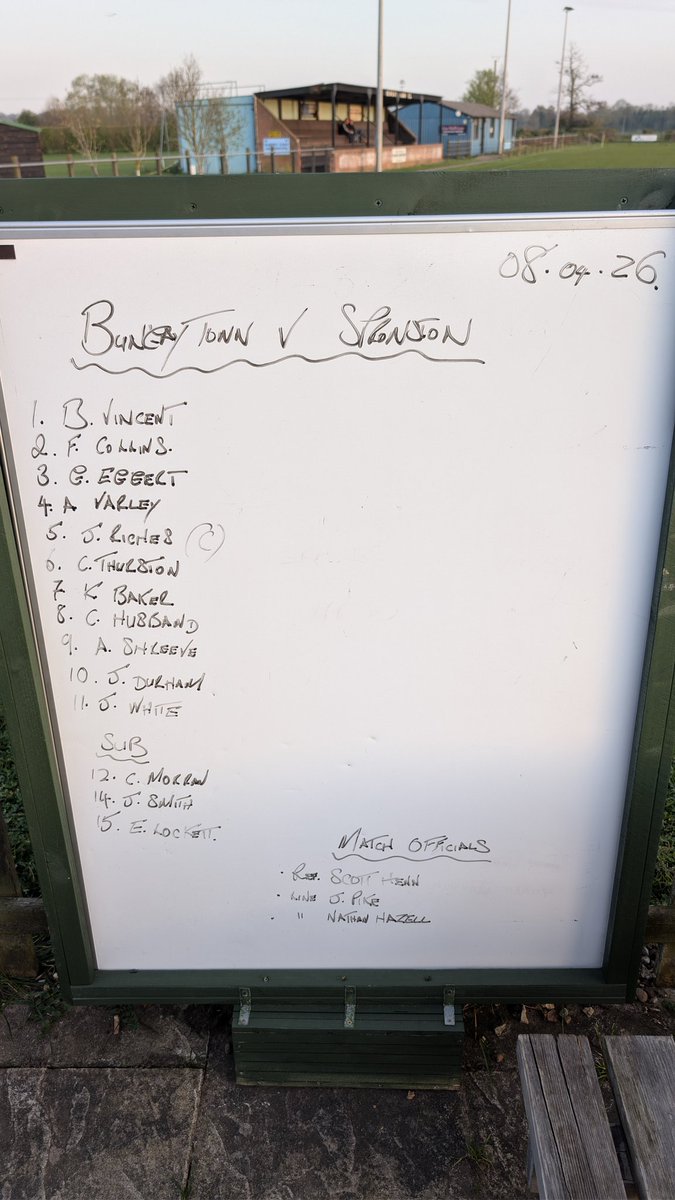 08.04.26.
BUNGAY TOWN V SPROWSTON
1. B. VINCENT
2. F. COLLINS.
3. G. EGGERT
4. A VARLEY
5. J. RICHES (C)
6. C. THURSTON
7. K BAKER
8. C. HUSBAND
9. A. SHREEVE
10. J. DURHAM
11. J. WHITE
SUB
12. C. MORRAN
14. J. SMITH
15. E. LOCKETT.
MATCH OFFICIALS
• REF. SCOTT HENN
• LINE J. PIKE
• " NATHAN HAZELL